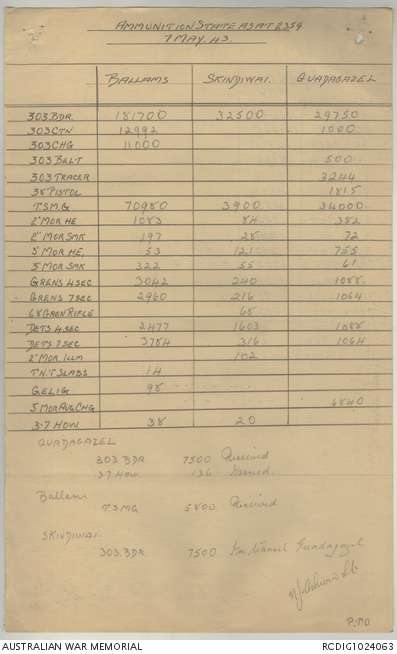 AMMUNITION STATE AS AT 2359
7 MAY. 43.
BALLAMS SKINDIWAI. GUADAGAZEL
303 BDR. 181700 32500 29750
303 CTN 12992 1000
303 CHG 11000
303 BELT 500
303 TRACER 3244
38 PISTOL 1815
T.S.M.G 70980 3900 34000
2" MOR HE 1083 84 382
2" MOR SMK 197 28 72
5 MOR HE. 53 121 755
5 MOR SMK 322 55 61
GRENS 4 SEC 3042 240 1088
GRENS 7 SEC 2960 216 1064
68 GREN RIFLE 65
DETS 4 SEC 2477 1603 1088
DETS 7 SEC 3784 316 1064
2" MOR. ILLM 102
T.N.T SLABS 14
GELIG 98
5 MOR AUG CHG 6840
3.7 HOW. 38 20
GUADAGAZEL
303 BDR 7500 Received
3.7 HOW. 136 Issued.
Ballams
T.S.MG 5800 Received
SKINDIWAI
303. BDR. 7500 Guadagazel
P.T.O
AUSTRALIAN WAR MEMORIAL RCDIG1024063